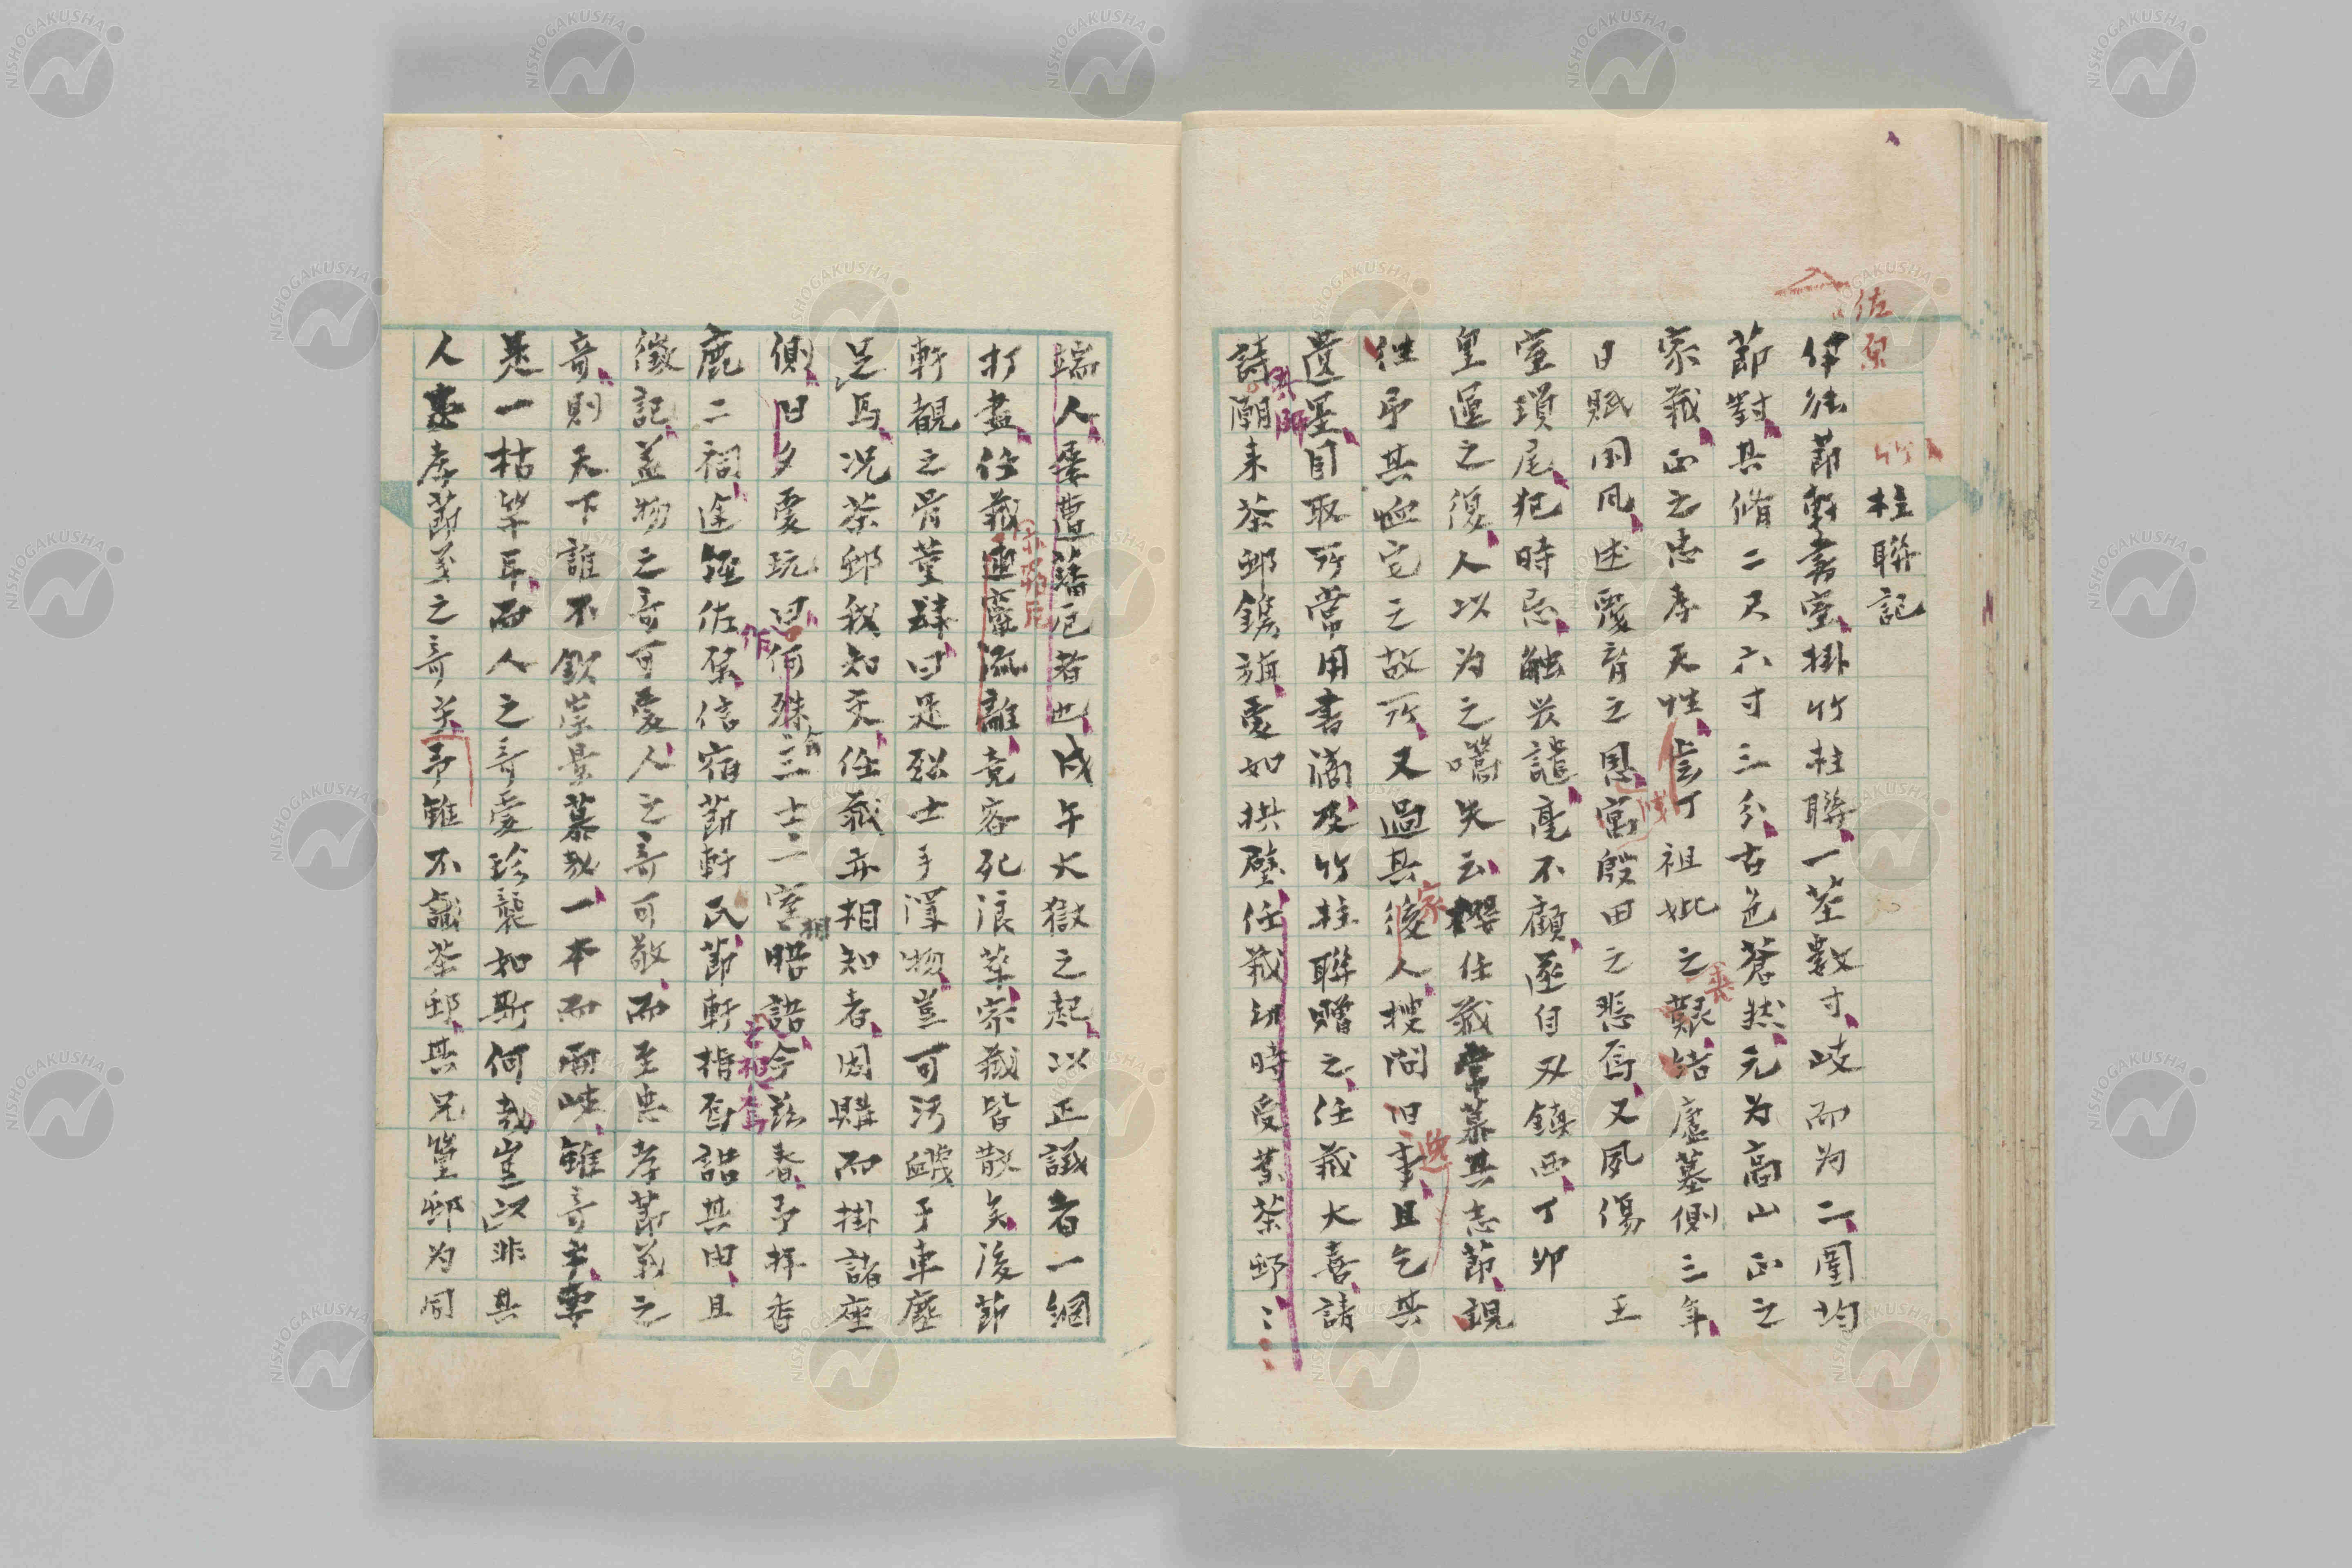 佐原
竹柱聯記
伊能節軒書室掛竹柱聯一莖數寸岐而为二圍均
節對其脩二尺六寸三分古色蒼然元为高山正之
家藏正之忠孝天性嘗丁祖妣之艱結廬墓側三年
喪
日賦閔凡述覆育之恩寓殷田之悲焉又夙傷王
室瑣尾犯時忌触災譴毫不顧遂自刃鎮西丁卯
皇運之復人以为之嚆矢云櫻任藏常慕其志節
性予其血宅之故所又過其後人搜問旧事且乞其
家
遺墨自取所常用書滴及竹柱聯贈之任藏大喜請
詩潮来茶邨鐫旃愛如拱璧任藏幼時受業茶邨
端人屢遭蕃厄者也戊午大獄之起以正議者一網
打盡任藏連竄流離竟客死浪華家藏皆散矣後節
軒観之骨董肆曰是烈士手澤物豈可污衊于車塵
足馬况茶邨我知交任藏亦相知者因購而掛諸座
側日夕愛玩曰何殊三士一室晤語今茲春予拝香
鹿二祠途經佐原信宿節軒氏節軒指焉詔其由且
徵記盖物之奇可愛人之奇可敬而至忠孝節義之
奇則天下誰不欽崇景慕哉一本而兩岐雖奇乎要
是一枯竿耳而人之奇愛珍襲如斯何哉豈以非其
人忠孝節義之奇矣予雖不識茶邨其兄篁邨为同